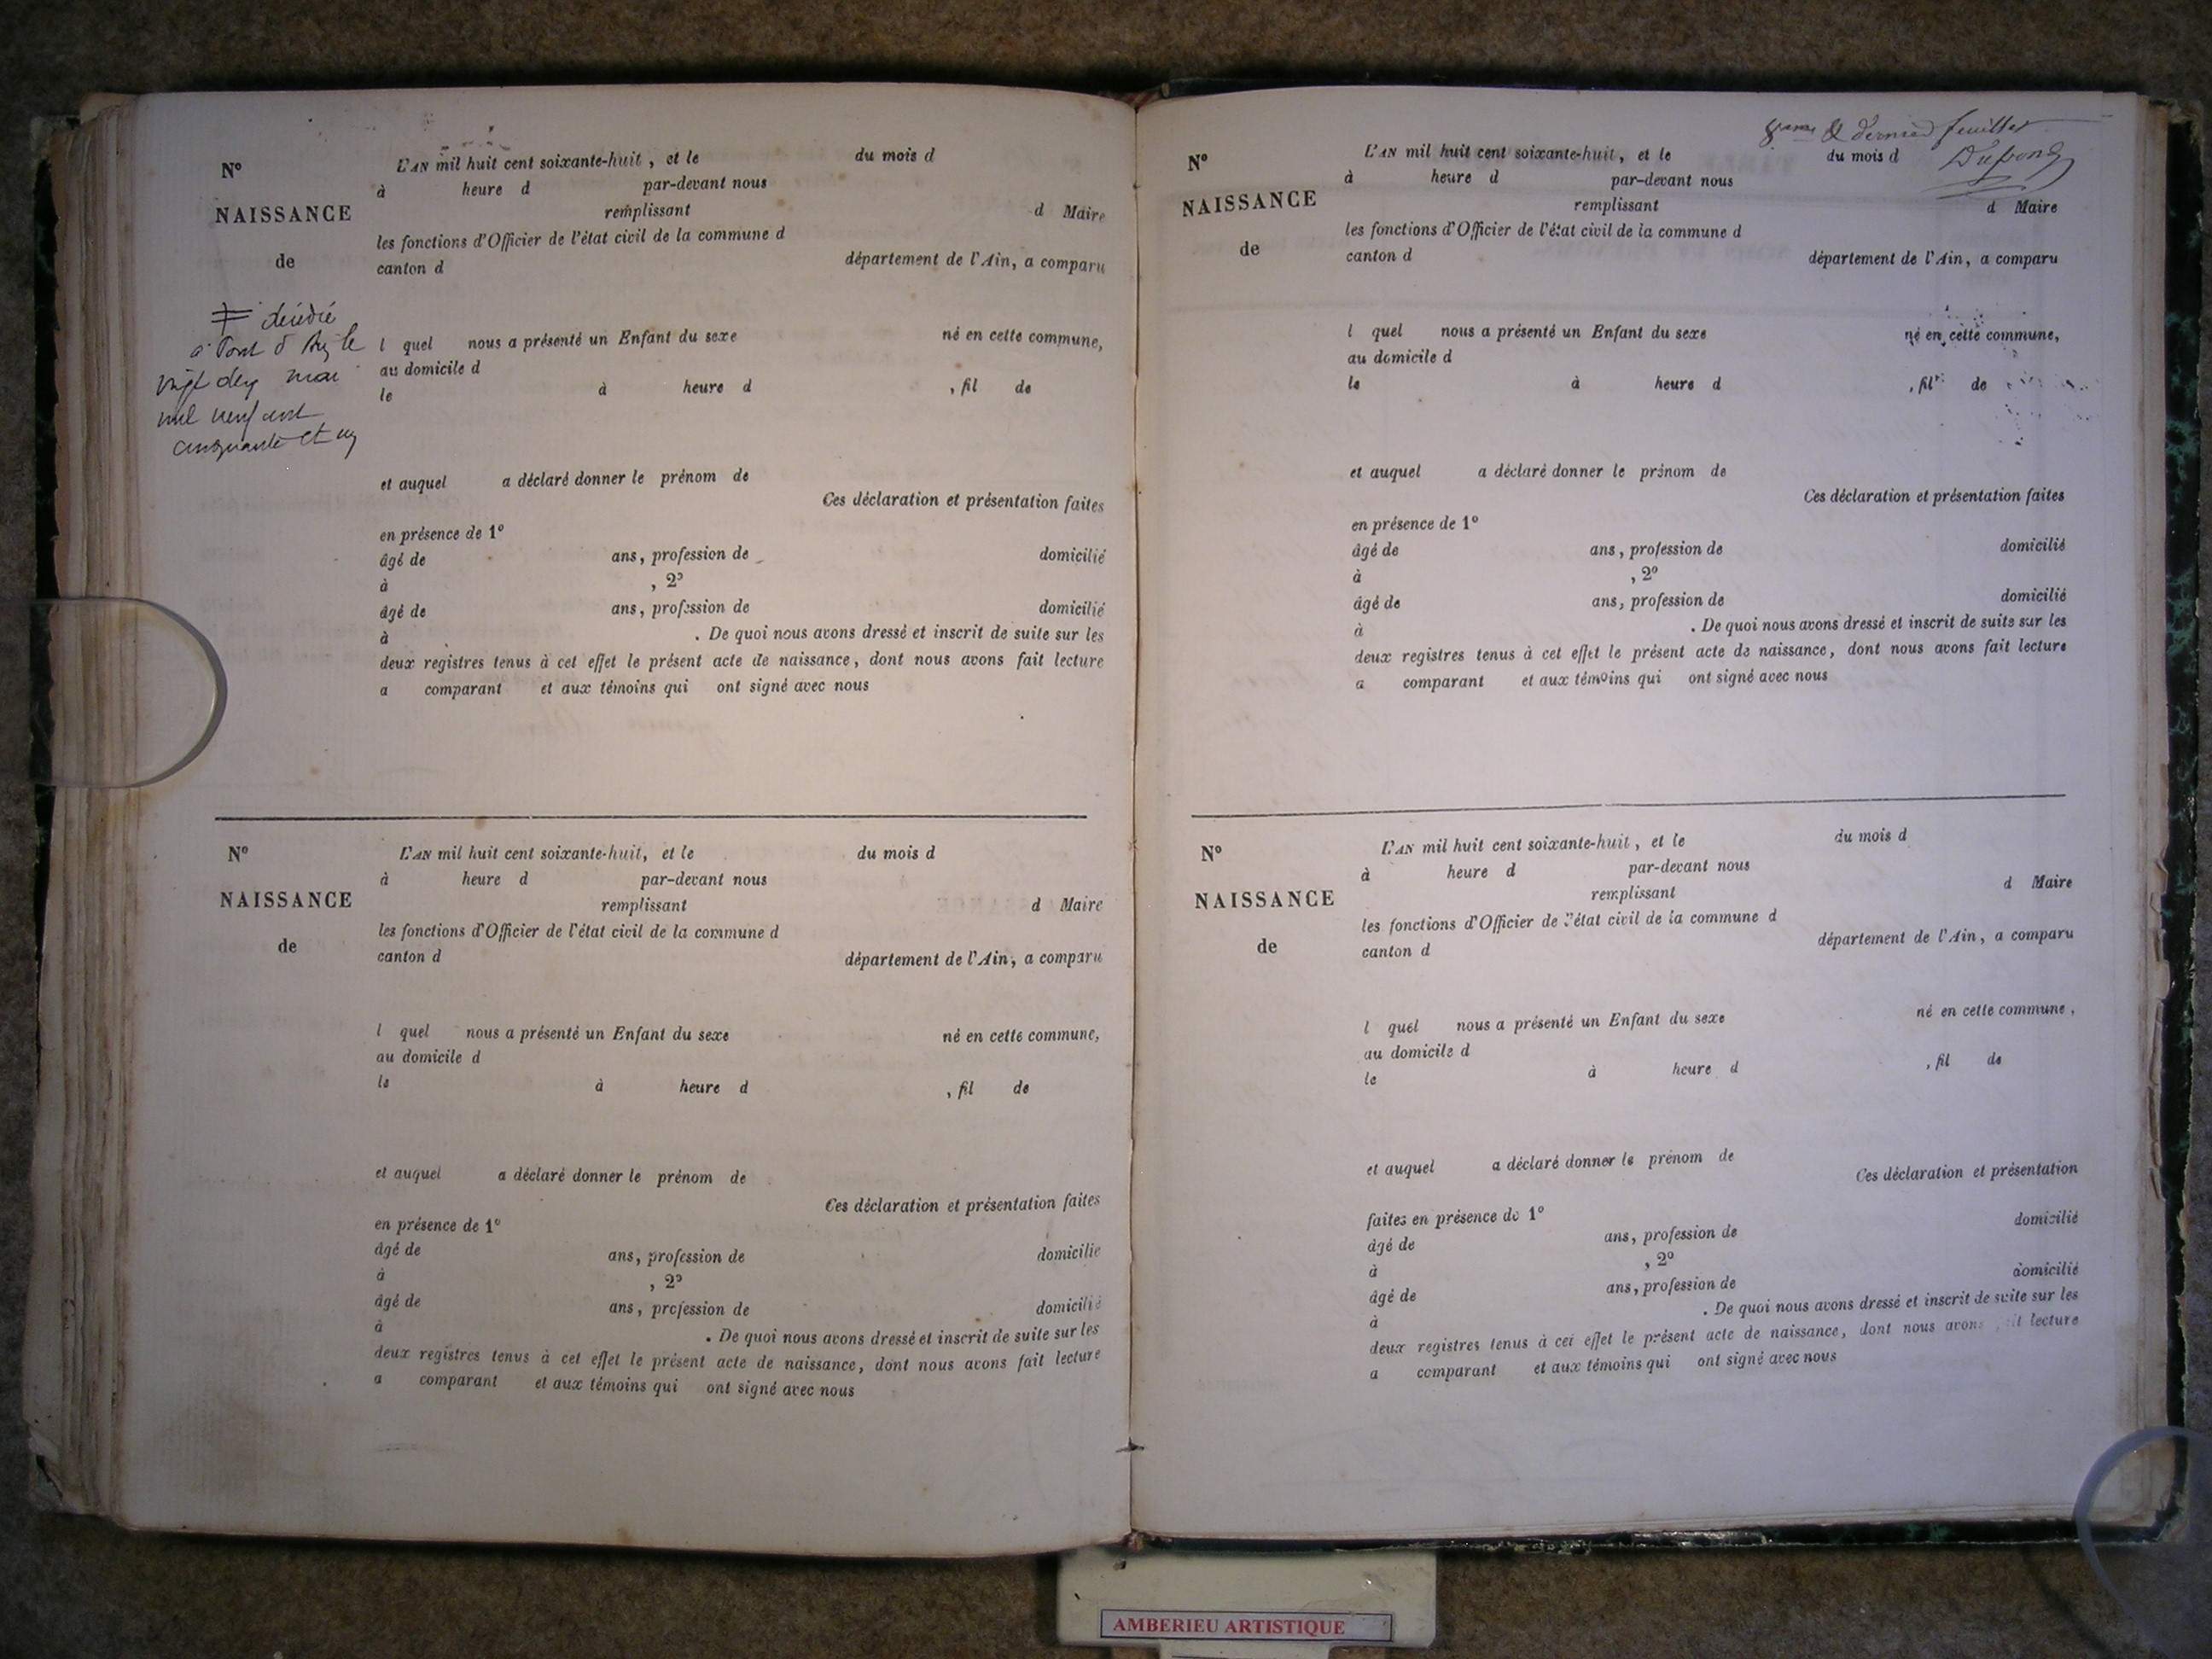 N° L'AN mil huit cent soixante-huit, et le du mois d
à heure d par-devant nous
NAISSANCE remplissant d Maire
les fonctions d'Officier de l'état civil de la commune d
de canton d département de l'Ain, a comparu
décédée
à Pont d' le
vingt mai
mil neuf cent
cinquante et un
l quel nous a présenté un Enfant du sexe né en cette commune,
au domicile d
le à heure d , fil de
et auquel a déclaré donner le prénom de
Ces déclaration et présentation faites
en présence de 1°
âgé de ans, profession de domicilié
à , 2°
âgé de ans, profession de domicilié
à . De quoi nous avons dressé et inscrit de suite sur les
deux registres tenus à cet effet le présent acte de naissance, dont nous avons fait lecture
a comparant et aux témoins qui ont signé avec nous
N° L'AN mil huit cent soixante-huit, et le du mois d
à heure d par-devant nous
NAISSANCE remplissant d Maire
les fonctions d'Officier de l'état civil de la commune d
de canton d département de l'Ain, a comparu
l quel nous a présenté un Enfant du sexe né en cette commune,
au domicile d
le à heure d , fil de
et auquel a déclaré donner le prénom de
Ces déclaration et présentation faites
en présence de 1°
âgé de ans, profession de domicilié
à , 2°
âgé de ans, profession de domicilié
à . De quoi nous avons dressé et inscrit de suite sur les
deux registres tenus à cet effet le présent acte de naissance, dont nous avons fait lecture
a comparant et aux témoins qui ont signé avec nous
& dernier feuillet
Dupond
N° L'AN mil huit cent soixante-huit, et le du mois d
à heure d par-devant nous
NAISSANCE remplissant d Maire
les fonctions d'Officier de l'état civil de la commune d
de canton d département de l'Ain, a comparu
l quel nous a présenté un Enfant du sexe né en cette commune,
au domicile d
le à heure d , fil de
et auquel a déclaré donner le prénom de
Ces déclaration et présentation faites
en présence de 1°
âgé de ans, profession de domicilié
à , 2°
âgé de ans, profession de domicilié
à . De quoi nous avons dressé et inscrit de suite sur les
deux registres tenus à cet effet le présent acte de naissance, dont nous avons fait lecture
a comparant et aux témoins qui ont signé avec nous
N° L'AN mil huit cent soixante-huit, et le du mois d
à heure d par-devant nous
NAISSANCE remplissant d Maire
les fonctions d'Officier de l'état civil de la commune d
de canton d département de l'Ain, a comparu
l quel nous a présenté un Enfant du sexe né en cette commune,
au domicile d
le à heure d , fil de
et auquel a déclaré donner le prénom de
Ces déclaration et présentation
faites en présence de 1°
âgé de ans, profession de domicilié
à , 2°
âgé de ans, profession de domicilié
à . De quoi nous avons dressé et inscrit de suite sur les
deux registres tenus à cet effet le présent acte de naissance, dont nous avons lecture
a comparant et aux témoins qui ont signé avec nous
AMBERIEU ARTISTIQUE